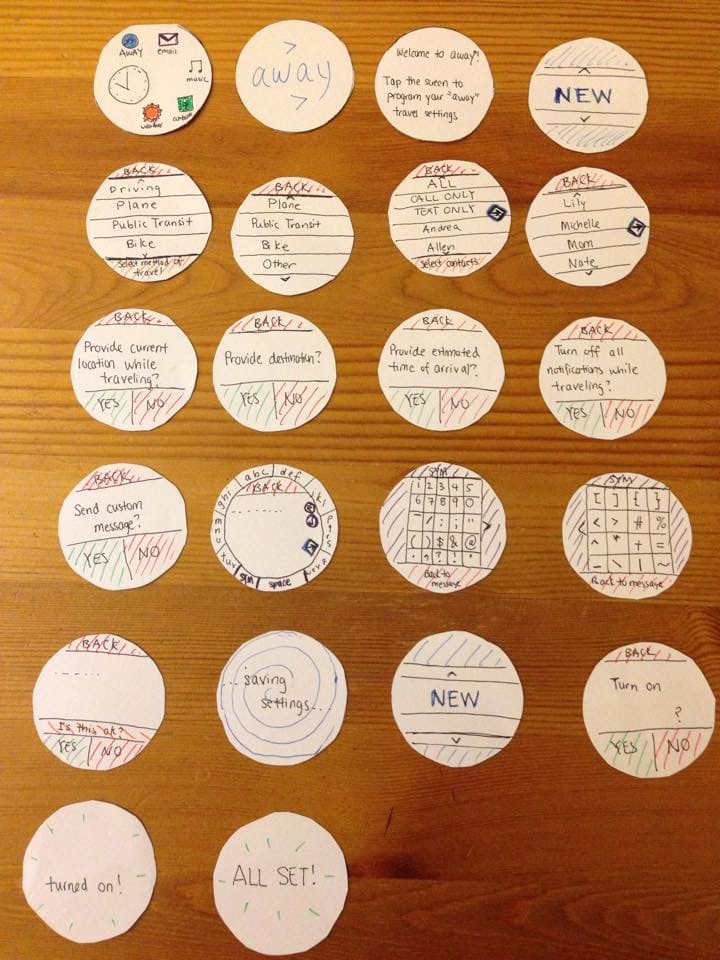 AWAY
email
music
weather
away
Welcome to away!
Tap the screen to
program your "away"
travel settings
NEW
BACK
Driving
Plane
Public Transit
Bike
Select method of
travel
BACK
Plane
Public Transit
Bike
Other
BACK
ALL
CALL ONLY
TEXT ONLY
Andrea
Allen
Select contacts
BACK
Lily
Michelle
Mom
Nate
BACK
Provide current
location while
traveling?
YES NO
BACK
Provide destination?
YES NO
BACK
Provide estimated
time of arrival?
YES NO
BACK
Turn off all
notifications while
traveling?
YES NO
BACK
Send custom
message?
YES NO
abc def
ghi jkl
BACK
mno pqrs
xyz
sym space
SYM
1 2 3 4 5
6 7 8 9 0
- / : ; "
( ) $ & @
. , ? ! '
Back to
message
SYM
[ ] { }
< > # %
^ * + =
_ \ | ~
Back to message
BACK
Is this ok?
YES NO
...saving
settings...
NEW
BACK
Turn on
?
YES NO
turned on!
ALL SET!